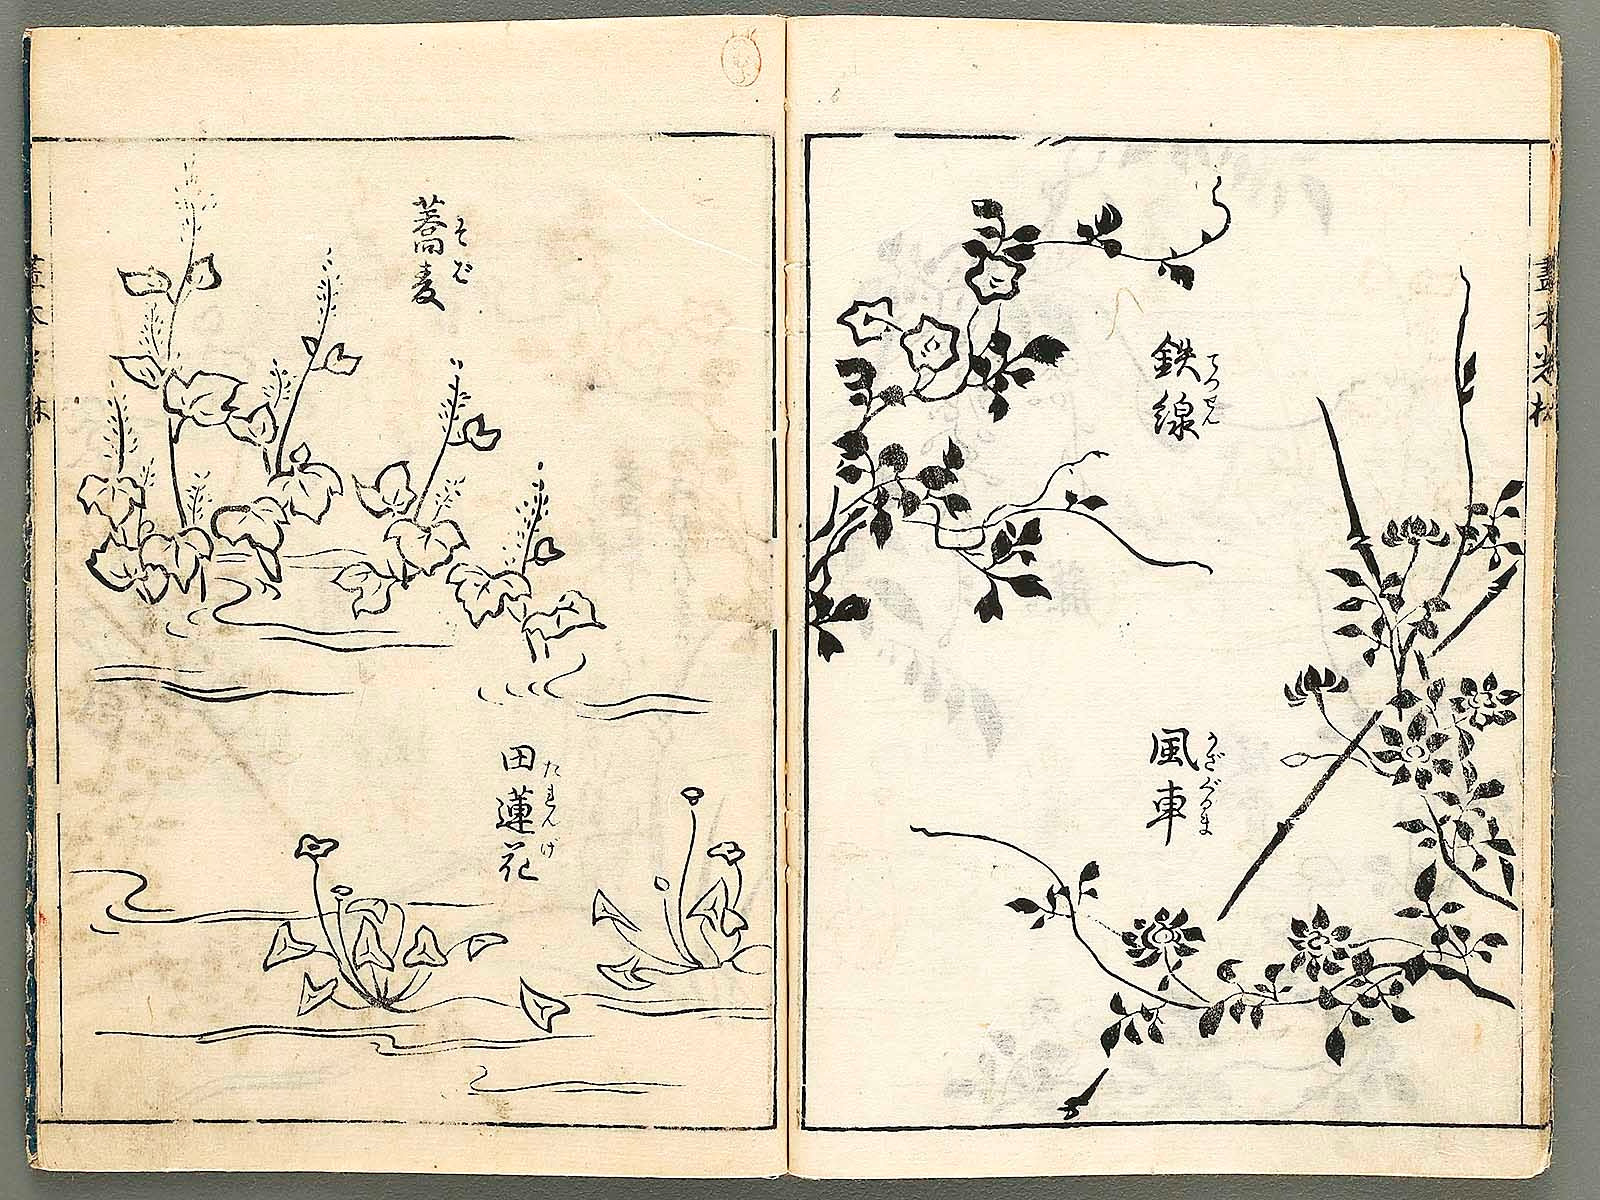 鉄線
てつせん
風車
かざぐるま
蕎麦
そば
田蓮花
たれんげ